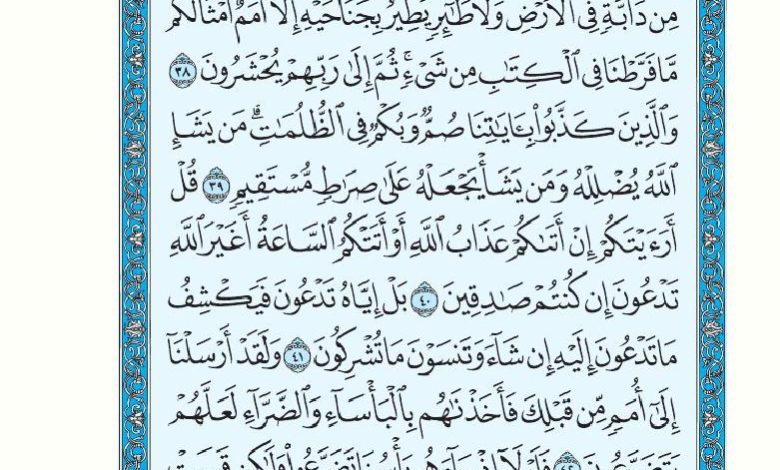 مِن دَآبَّةٍ فِي ٱلْأَرْضِ وَلَا طَٰٓئِرٍ يَطِيرُ بِجَنَاحَيْهِ إِلَّآ أُمَمٌ أَمْثَالُكُم
مَّا فَرَّطْنَا فِي ٱلْكِتَٰبِ مِن شَيْءٍ ثُمَّ إِلَىٰ رَبِّهِمْ يُحْشَرُونَ ٣٨
وَٱلَّذِينَ كَذَّبُوا۟ بِـَٔايَٰتِنَا صُمٌّ وَبُكْمٌ فِي ٱلظُّلُمَٰتِ ۗ مَن يَشَإِ
ٱللَّهُ يُضْلِلْهُ وَمَن يَشَأْ يَجْعَلْهُ عَلَىٰ صِرَٰطٍ مُّسْتَقِيمٍ ٣٩ قُلْ
أَرَءَيْتَكُمْ إِنْ أَتَىٰكُمْ عَذَابُ ٱللَّهِ أَوْ أَتَتْكُمُ ٱلسَّاعَةُ أَغَيْرَ ٱللَّهِ
تَدْعُونَ إِن كُنتُمْ صَٰدِقِينَ ٤٠ بَلْ إِيَّاهُ تَدْعُونَ فَيَكْشِفُ
مَا تَدْعُونَ إِلَيْهِ إِن شَآءَ وَتَنسَوْنَ مَا تُشْرِكُونَ ٤١ وَلَقَدْ أَرْسَلْنَآ
إِلَىٰٓ أُمَمٍ مِّن قَبْلِكَ فَأَخَذْنَٰهُم بِٱلْبَأْسَآءِ وَٱلضَّرَّآءِ لَعَلَّهُمْ
يَتَضَرَّعُونَ ٤٢ فَلَوْلَآ إِذْ جَآءَهُم بَأْسُنَا تَضَرَّعُوا۟ وَلَٰكِن قَسَتْ